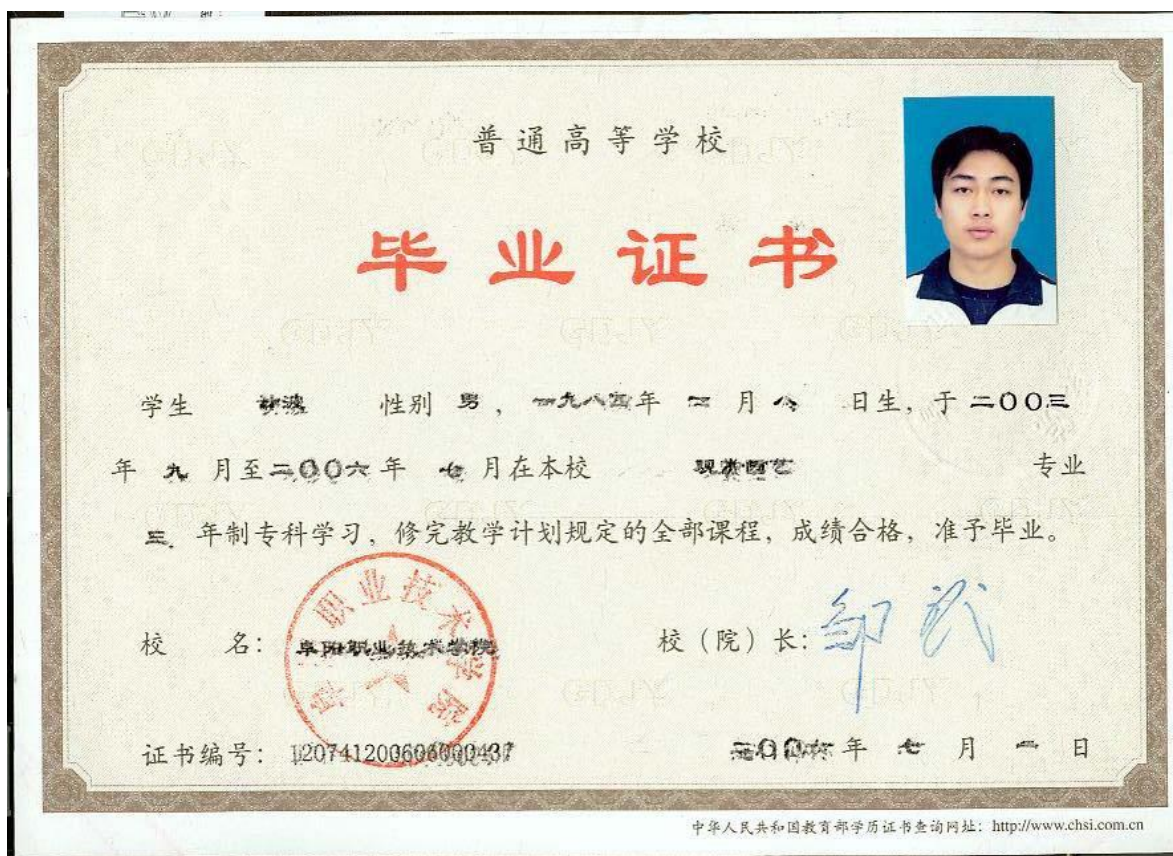 普通高等学校
毕业证书
学生 波 性别 男，一九八四年 二 月 八 日生，于 二〇〇三
年 九 月至二〇〇六年 七 月在本校 观赏园艺 专业
三 年制专科学习，修完教学计划规定的全部课程，成绩合格，准予毕业。
职业技术学院
校 名：阜阳职业技术学院 校（院）长：邹
证书编号：120741200606000437 二〇〇六年 七 月 一 日
中华人民共和国教育部学历证书查询网址：http://www.chsi.com.cn